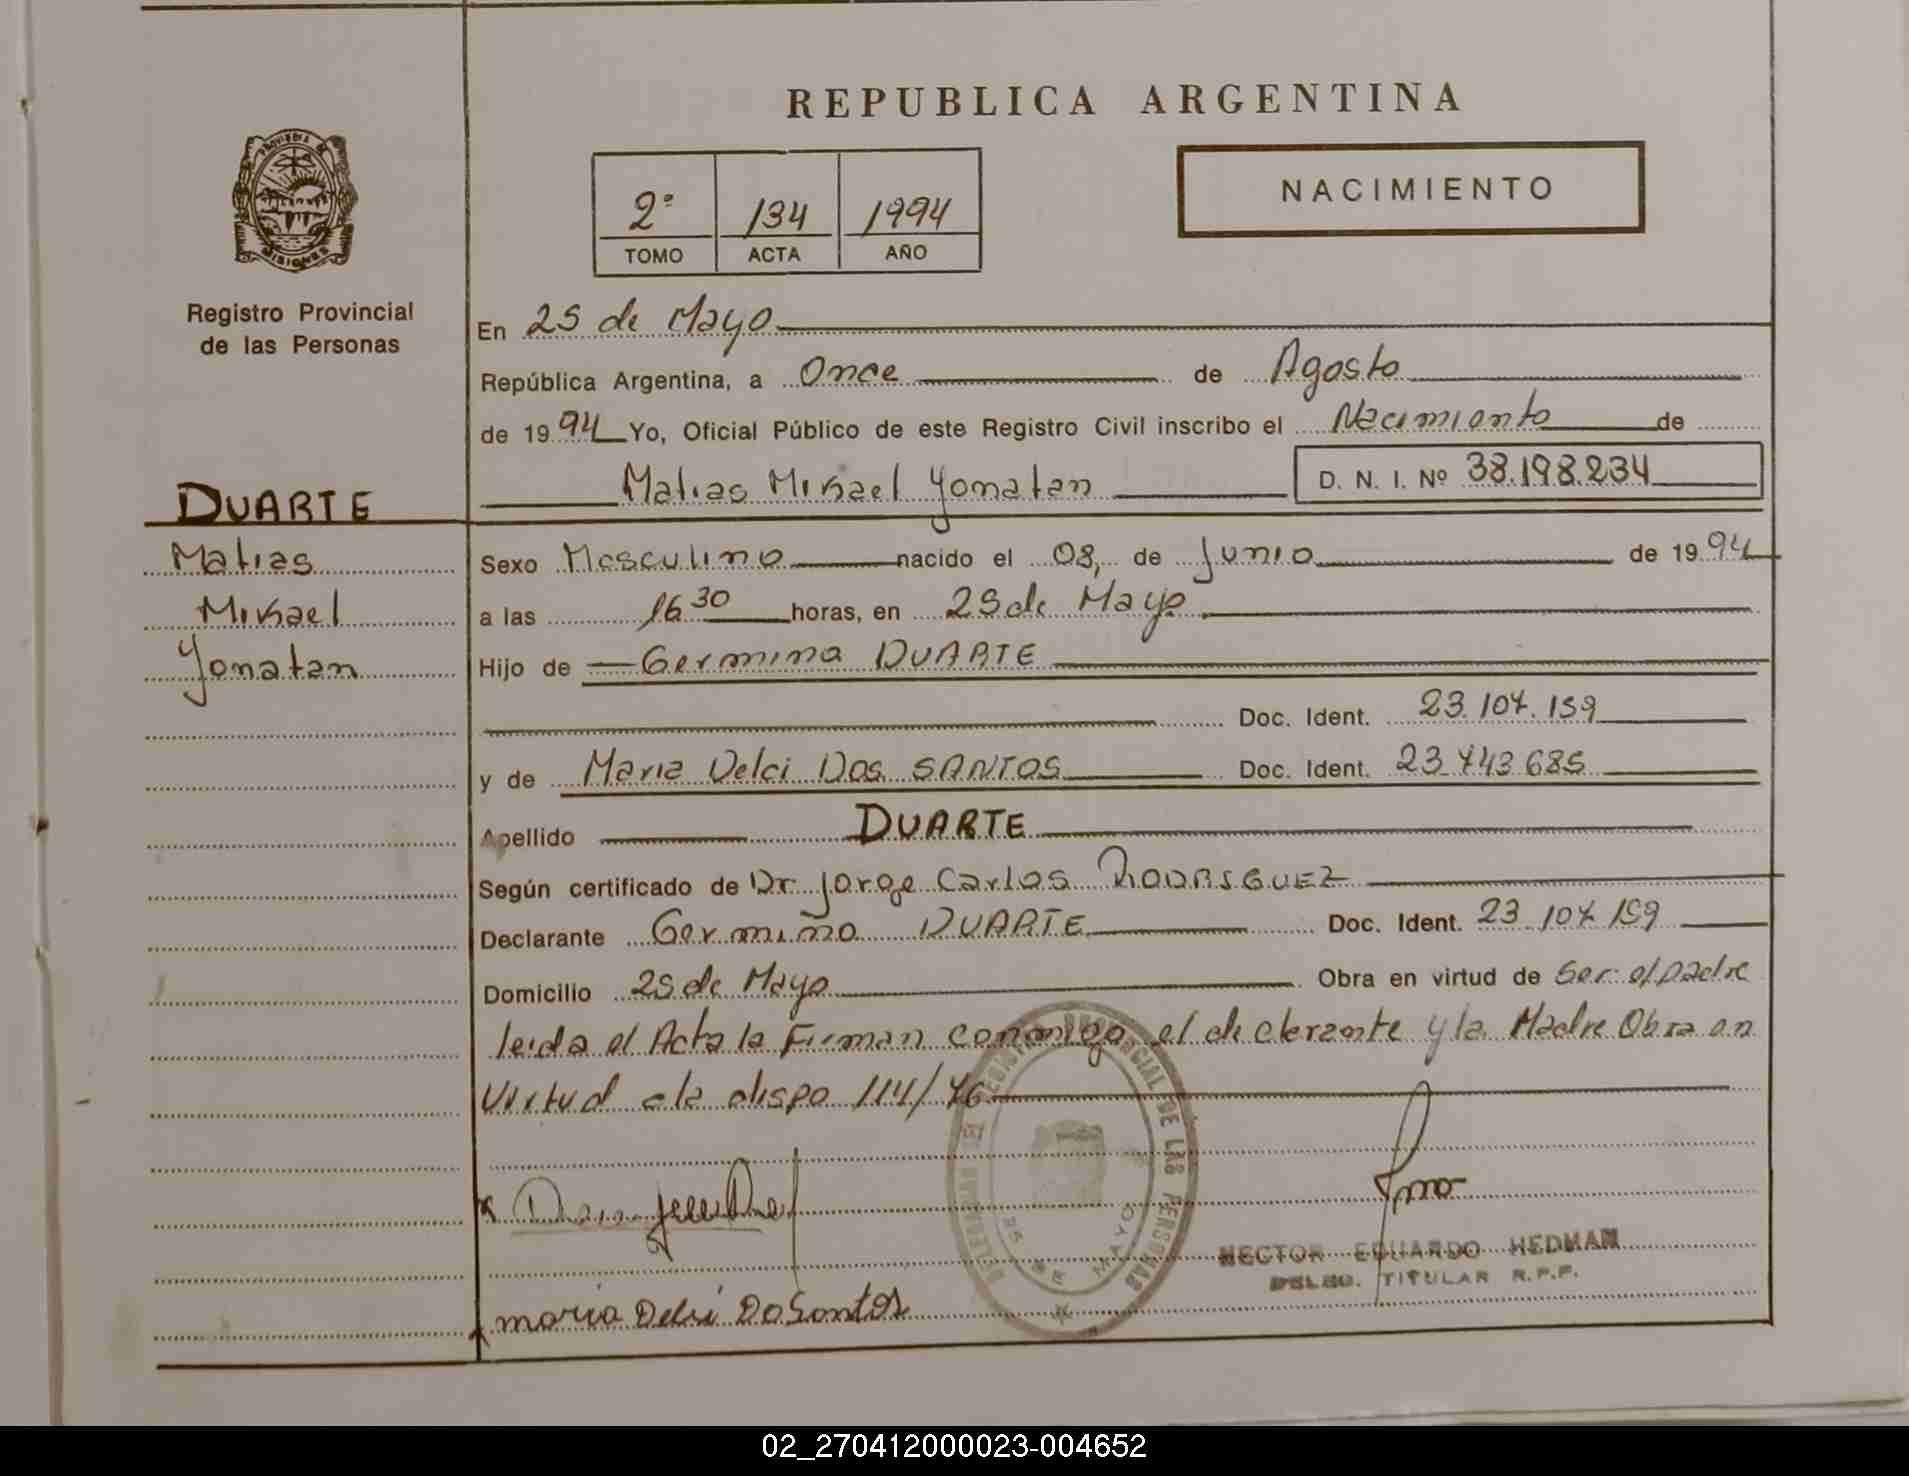 REPUBLICA ARGENTINA
PROVINCIA
MISIONES
Registro Provincial
de las Personas
2º 134 1994
TOMO ACTA AÑO
NACIMIENTO
En 25 de Mayo
República Argentina, a Once de Agosto
de 1994 Yo, Oficial Público de este Registro Civil inscribo el Nacimiento de
Matias Mikael Yonatan D. N. I. Nº 38.198.234
DUARTE
Matias
Mikael
Yonatan
Sexo Masculino nacido el 08, de Junio de 1994
a las 16 30 horas, en 25 de Mayo
Hijo de Germino DUARTE
Doc. Ident. 23.107.159
y de Maria Delci Dos SANTOS Doc. Ident. 23 743 685
Apellido DUARTE
Según certificado de Dr. Jorge Carlos RODRIGUEZ
Declarante Germino DUARTE Doc. Ident. 23 107 159
Domicilio 25 de Mayo Obra en virtud de Ser el padre
leida el Acta la Firman conmigo el declarante y la Madre Obra en
Virtud a la dispo 114/76
REGISTRO PROVINCIAL DE LAS PERSONAS
25 DE MAYO
HECTOR EDUARDO HEDMAN
DELEG. TITULAR R.P.P.
maria Delsi Do Santos
02_270412000023-004652